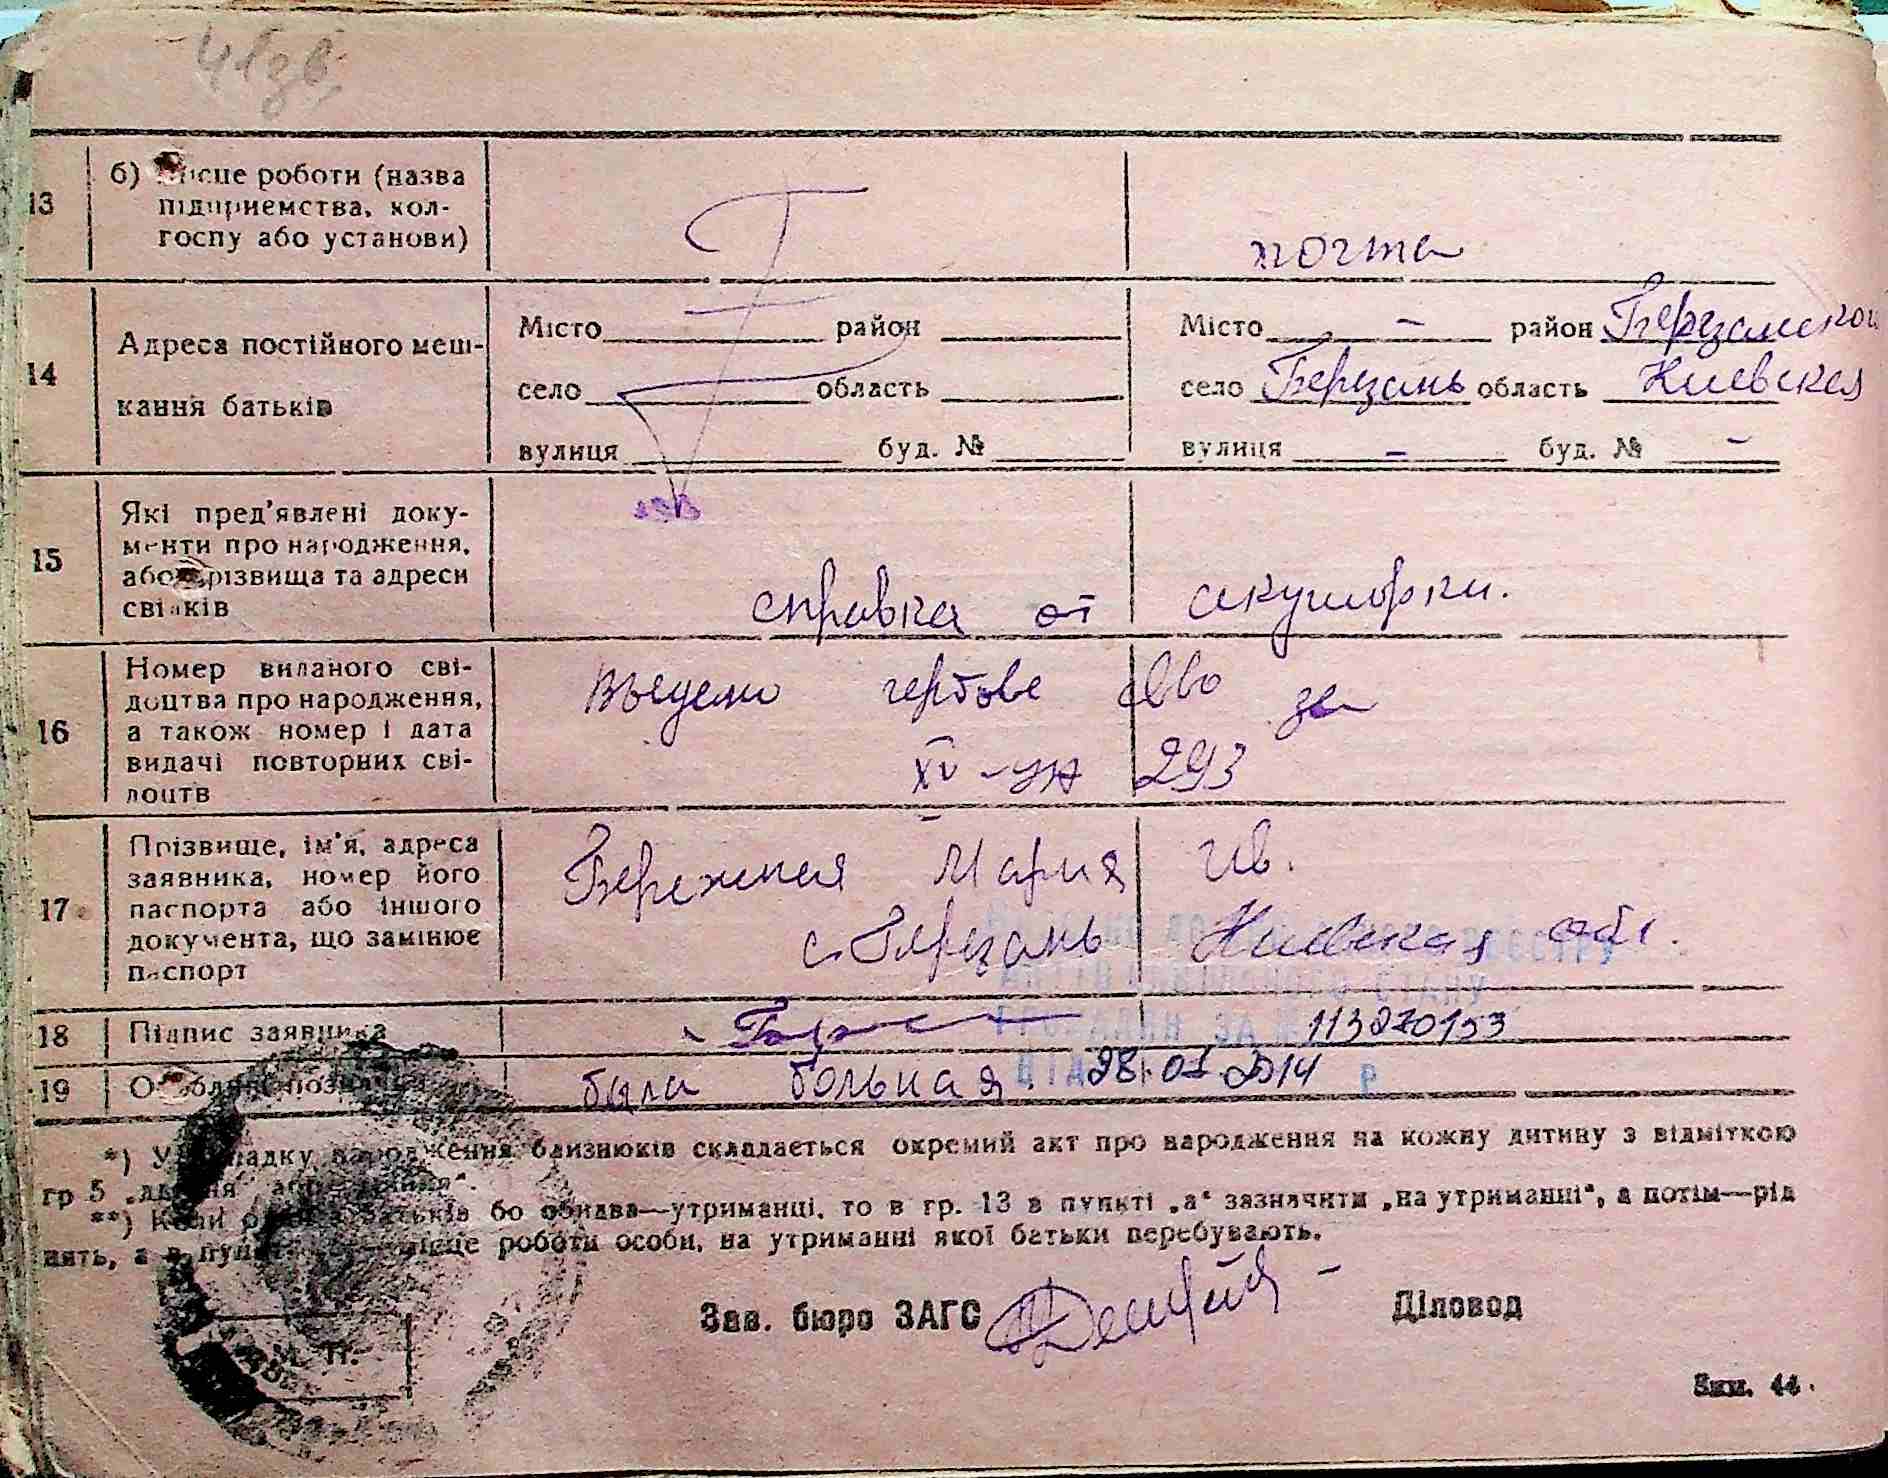 41зв
13 б) Місце роботи (назва
підприємства, кол-
госпу або установи)
почта
14 Адреса постійного меш-
кання батьків
Місто район
село область
вулиця буд. №
Місто - район Березанский
село Березань область Киевская
вулиця - буд. № -
15 Які пред'явлені доку-
менти про народження,
або прізвища та адреси
свідків
справка от акушорки.
16 Номер виланого сві-
доцтва про народження,
а також номер і дата
видачі повторних сві-
доцтв
гербове св-во за
XV-УК 293
17 Прізвище, ім'я, адреса
заявника, номер його
паспорта або іншого
документа, що замінює
паспорт
Бережная Мария Ив.
с. Березань Киевская обл.
РЕЄСТРУ
АКТІВ ЦИВІЛЬНОГО СТАНУ
18 Підпис заявника
ЗА №
113270153
19 Особливі позначки
была больная.
28.01.2014 р
*) У випадку народження близнюків складається окремий акт про народження на кожну дитину з відміткою
гр 5 „двійня",
**) Коли один з батьків бо обидва—утриманці, то в гр. 13 в пункті „а" зазначити „на утриманні", а потім—рід
нять, а в пункті місце роботи особи, на утриманні якої батьки перебувають.
Зав. бюро ЗАГС
Діловод
М. П.
Зам. 44